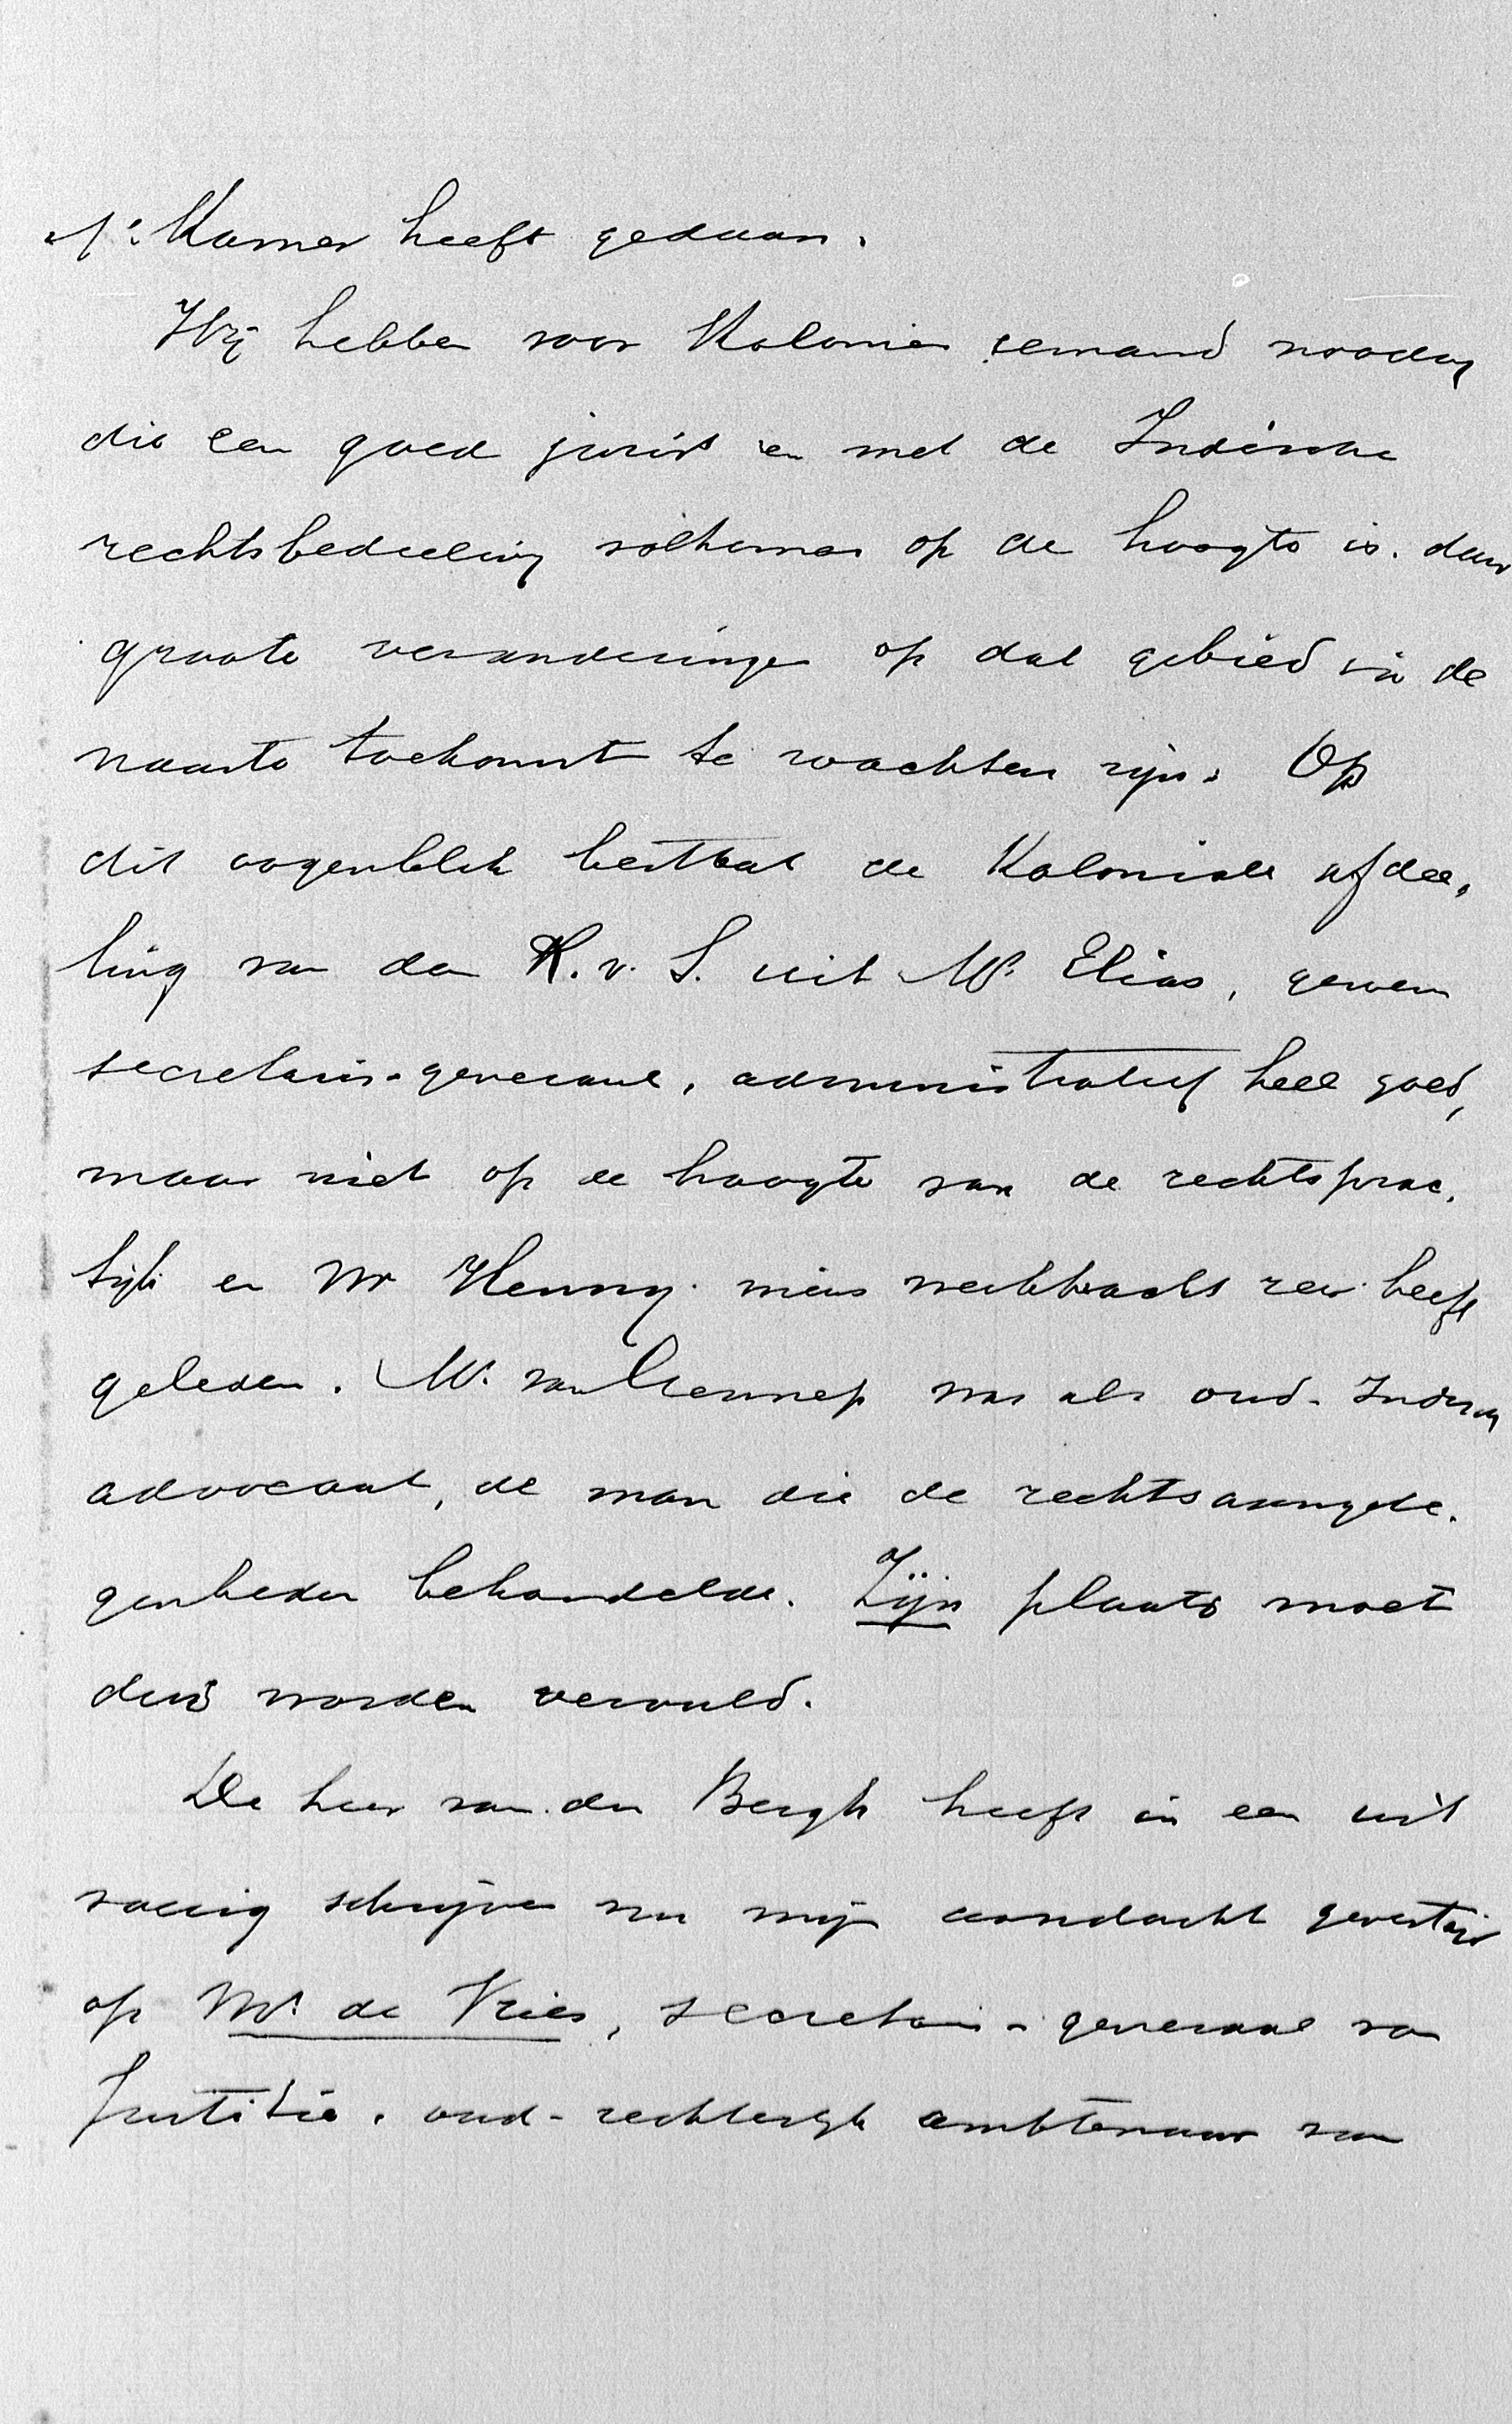 1e Kamer heeft gedaan.
Wij hebben voor Koloniën iemand noodig
die een goed jurist en met de Indische
rechtsbedeeling volkomen op de hoogte is. daar
groote veranderingen op dat gebied in de
naaste toekomst te wachten zijn. Op
dit oogenblik bestaat de Koloniale afdee-
ling van den R. v. S. uit Mr. Elias, gewezen
secretaris-generaal, administratief heel goed,
maar niet op de hoogte van de rechtsprac-
tijk en Mr Henny wiens werkkracht zeer heeft
geleden. Mr. van Gennep was als oud-Indisch
advocaat, de man die de rechtsaangele-
genheden behandelde. Zijn plaats moet
dus worden vervuld.
De heer van den Bergh heeft in een uit
voerig schrijven nu mijn aandacht gevestigd
op Mr. de Vries, secretaris-generaal van
Justitie, oud-rechterlijk ambtenaar van